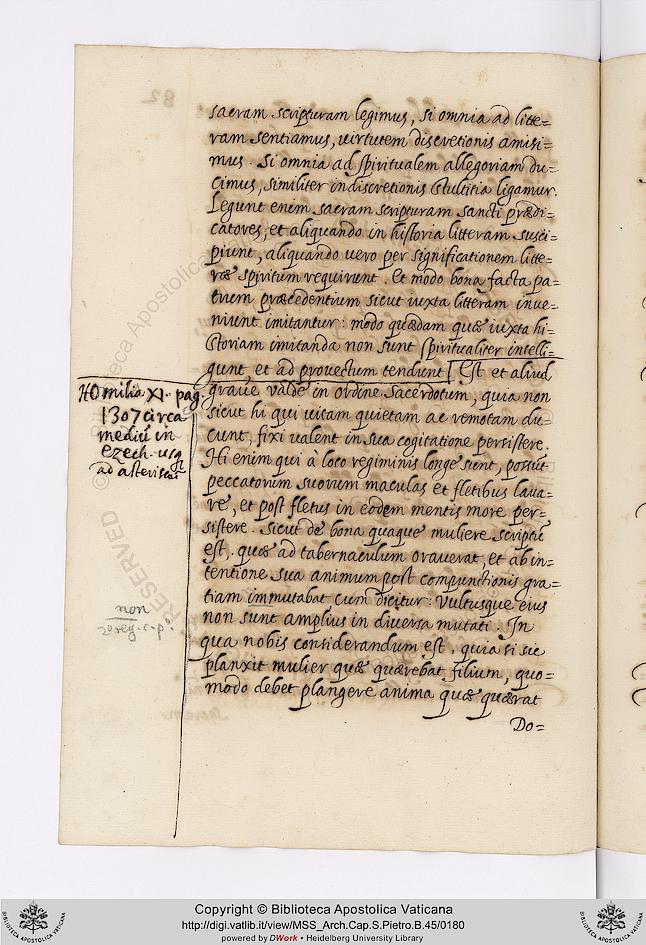 sacram scripturam legimus, si omnia ad litte=
ram sentiamus, uirtutem discretionis amisi=
mus. Si omnia ad spiritualem allegoriam du=
cimus, similiter indiscretionis stultitia ligamur.
Legunt enem sacram scripturam sancti prædi=
catores, et aliquando in historia litteram susci=
piunt, aliquando uero per significationem litte=
ræ spiritum requirunt. Et modo bona facta pa=
trum præcedentium sicut iuxta litteram inue=
niunt imitantur: modo quædam quæ iuxta hi=
storiam imitanda non sunt spiritualiter intelli=
gunt, et ad prouectum tendunt[ Est et aliud
graue valde in ordine sacerdotum, quia non
sicut hi qui uitam quietam ac remotam du=
cunt, fixi ualent in sua cogitatione persistere.
Hi enim qui à loco regiminis longe sunt, possūt
peccatorum suorum maculas et fletibus laua=
re, et post fletus in eodem mentis more per=
sistere. Sicut de bona quaque muliere scriptū
est, quæ ad tabernaculum orauerat, et ab in=
tentione sua animum post compunctionis gra=
tiam immutabat cum dicitur: Vultusque eius
non sunt amplius in diuersa mutati. In
qua nobis considerandum est, quia si sic
planxit mulier quæ quærebat filium, quo=
modo debet plangere anima quæ quærat
Do=
HOmilia XI. pag.
1307 circa
mediū in
ezech. usq
ad asteriscū
non
82
Copyright © Biblioteca Apostolica Vaticana
http://digi.vatlib.it/view/MSS_Arch.Cap.S.Pietro.B.45/0180
powered by DWork • Heidelberg University Library
BIBLIOTECA APOSTOLICA VATICANA
BIBLIOTECA APOSTOLICA VATICANA